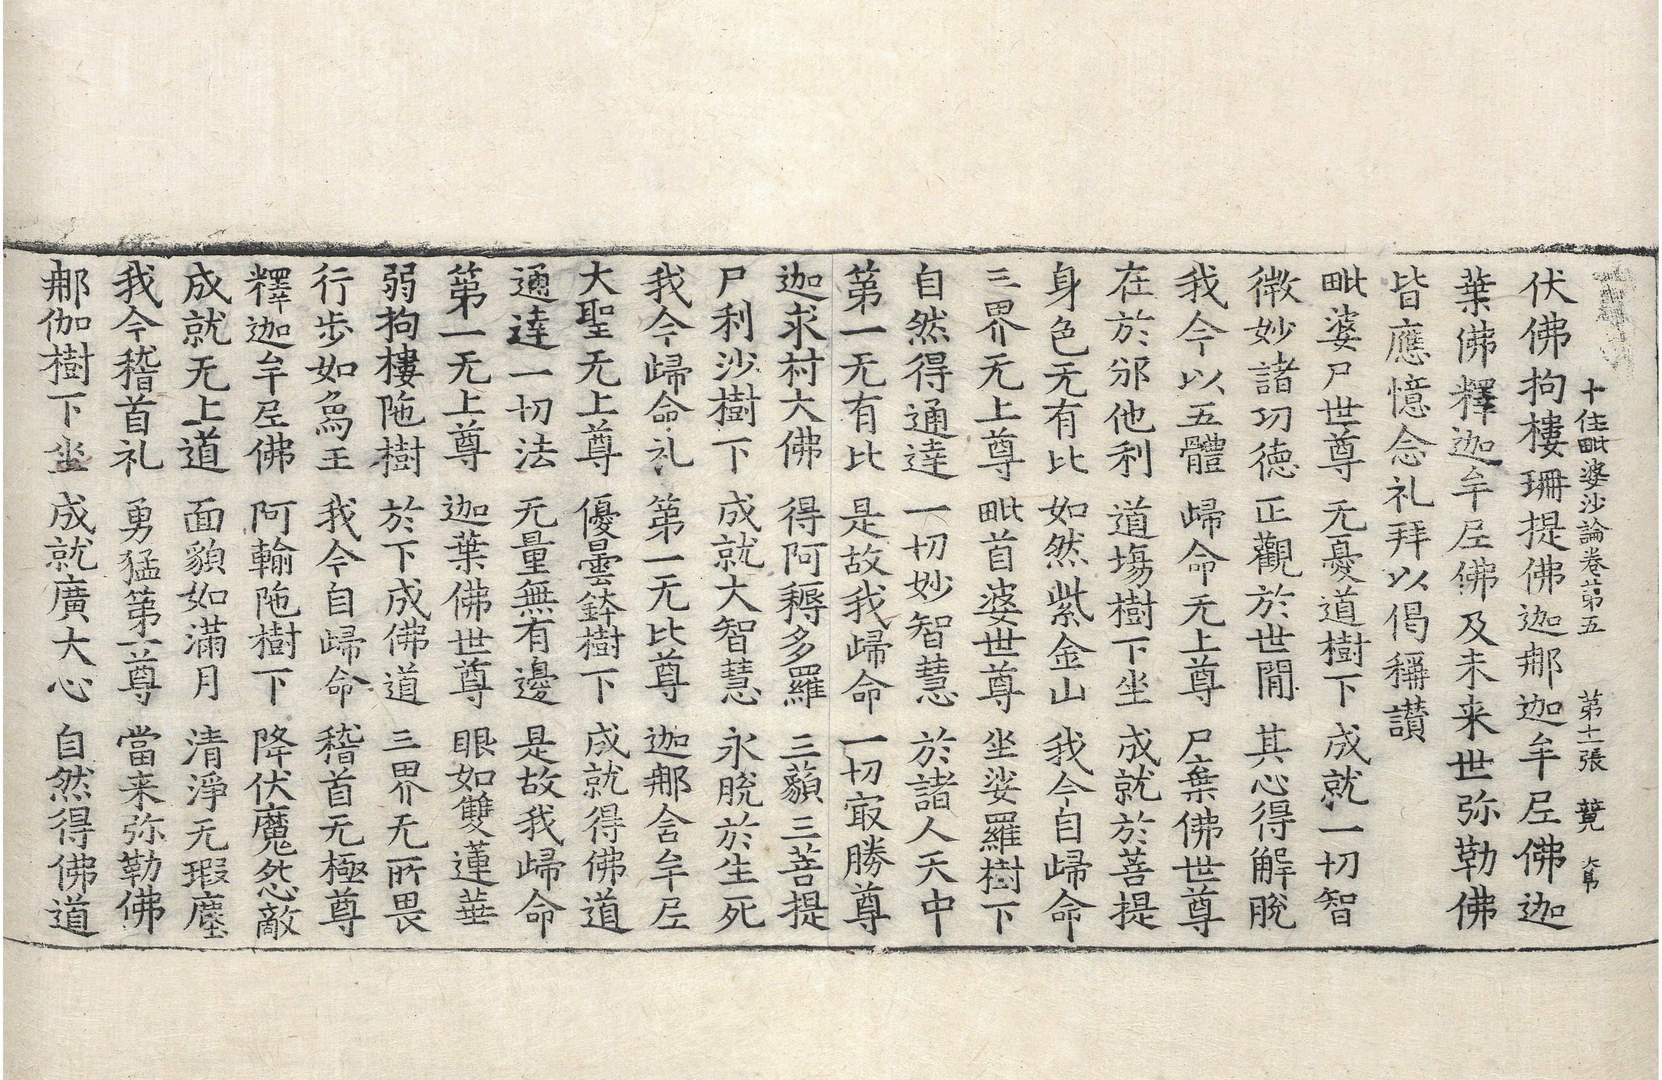 十住毗婆沙論卷第五 第十一張 競
伏佛拘樓珊提佛迦那迦牟尼佛迦
葉佛釋迦牟尼佛及未来世弥勒佛
皆應憶念礼拜以偈稱讃
毗婆尸世尊 无憂道樹下 成就一切智
微妙諸功德 正觀於世閒 其心得解脫
我今以五體 歸命无上尊 尸棄佛世尊
在於邠他利 道場樹下坐 成就於菩提
身色无有比 如然紫金山 我今自歸命
三界无上尊 毗首婆世尊 坐娑羅樹下
自然得通達 一切妙智慧 於諸人天中
第一无有比 是故我歸命 一切㝡勝尊
迦求村大佛 得阿耨多羅 三藐三菩提
尸利沙樹下 成就大智慧 永脫於生死
我今歸命礼 第一无比尊 迦那含牟尼
大聖无上尊 優曇鉢樹下 成就得佛道
通達一切法 无量無有邊 是故我歸命
第一无上尊 迦葉佛世尊 眼如雙蓮華
弱拘樓陁樹 於下成佛道 三界无所畏
行步如烏王 我今自歸命 稽首无極尊
釋迦牟尼佛 阿輸陁樹下 降伏魔怨敵
成就无上道 面貌如滿月 清淨无瑕塵
我今稽首礼 勇猛第一尊 當来弥勒佛
那伽樹下坐 成就廣大心 自然得佛道